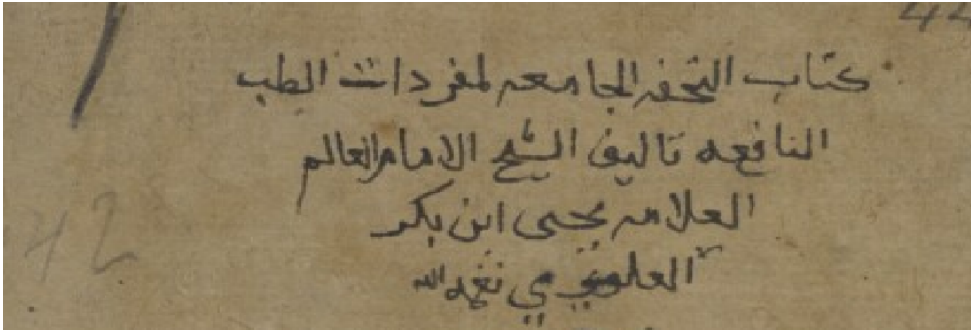 44
كتاب التحفه الجامعه لمفردات الطب
النافعه تاليف الشيخ الامام العالم
العلامه يحيى ابن بكر
الله
42